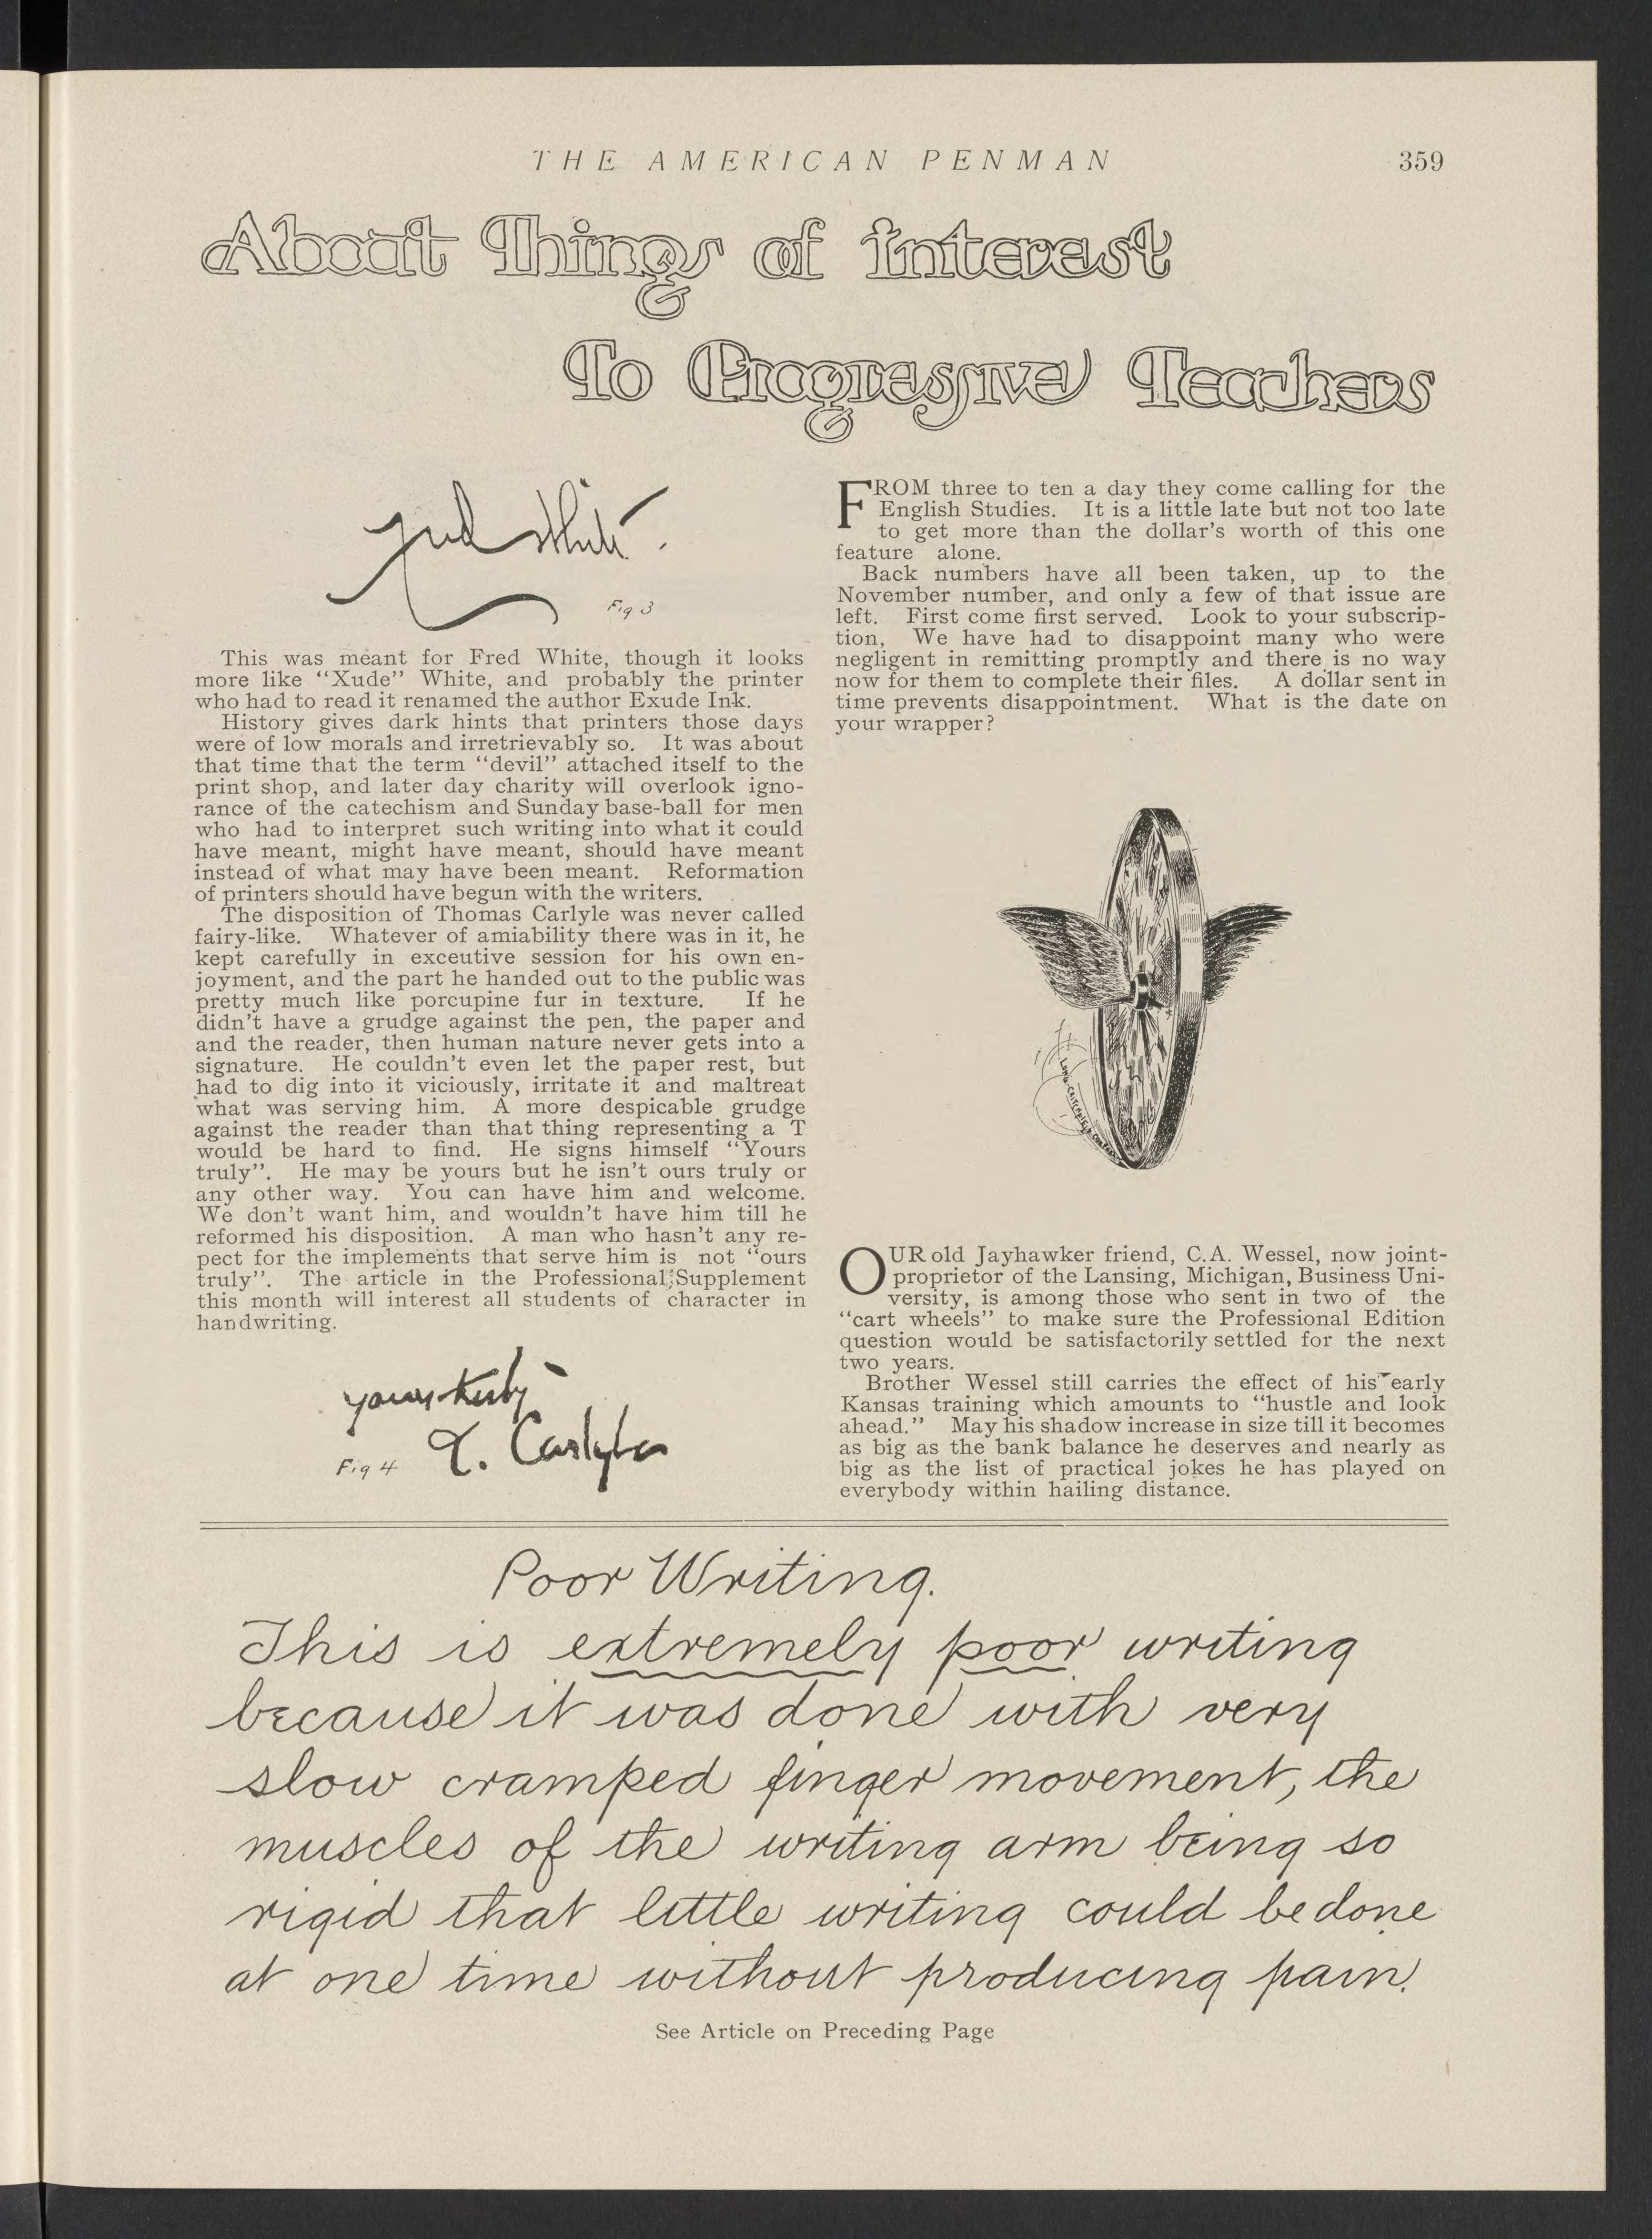 THE AMERICAN PENMAN
359
About Things of Interest
To Progressive Teachers
Fred White.
Fig 3
This was meant for Fred White, though it looks
more like "Xude" White, and probably the printer
who had to read it renamed the author Exude Ink.
History gives dark hints that printers those days
were of low morals and irretrievably so. It was about
that time that the term "devil" attached itself to the
print shop, and later day charity will overlook igno-
rance of the catechism and Sunday base-ball for men
who had to interpret such writing into what it could
have meant, might have meant, should have meant
instead of what may have been meant. Reformation
of printers should have begun with the writers.
The disposition of Thomas Carlyle was never called
fairy-like. Whatever of amiability there was in it, he
kept carefully in exceutive session for his own en-
joyment, and the part he handed out to the public was
pretty much like porcupine fur in texture. If he
didn't have a grudge against the pen, the paper and
and the reader, then human nature never gets into a
signature. He couldn't even let the paper rest, but
had to dig into it viciously, irritate it and maltreat
what was serving him. A more despicable grudge
against the reader than that thing representing a T
would be hard to find. He signs himself "Yours
truly". He may be yours but he isn't ours truly or
any other way. You can have him and welcome.
We don't want him, and wouldn't have him till he
reformed his disposition. A man who hasn't any re-
pect for the implements that serve him is not "ours
truly". The article in the Professional Supplement
this month will interest all students of character in
handwriting.
yours truly
T. Carlyle
Fig 4
FROM three to ten a day they come calling for the
English Studies. It is a little late but not too late
to get more than the dollar's worth of this one
feature alone.
Back numbers have all been taken, up to the
November number, and only a few of that issue are
left. First come first served. Look to your subscrip-
tion, We have had to disappoint many who were
negligent in remitting promptly and there is no way
now for them to complete their files. A dollar sent in
time prevents disappointment. What is the date on
your wrapper?
OUR old Jayhawker friend, C.A. Wessel, now joint-
proprietor of the Lansing, Michigan, Business Uni-
versity, is among those who sent in two of the
"cart wheels" to make sure the Professional Edition
question would be satisfactorily settled for the next
two years.
Brother Wessel still carries the effect of his early
Kansas training which amounts to "hustle and look
ahead." May his shadow increase in size till it becomes
as big as the bank balance he deserves and nearly as
big as the list of practical jokes he has played on
everybody within hailing distance.
Poor Writing.
This is extremely poor writing
because it was done with very
slow cramped finger movement, the
muscles of the writing arm being so
rigid that little writing could be done
at one time without producing pain.
See Article on Preceding Page